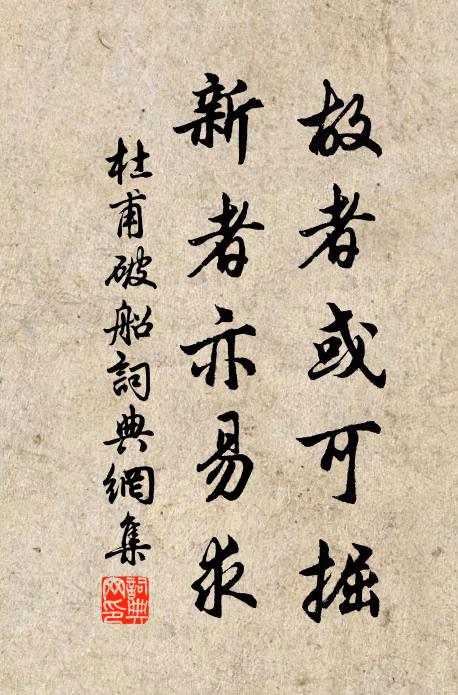 故者或可掘
新者亦易求
杜甫破船詞典網集
詞典网印